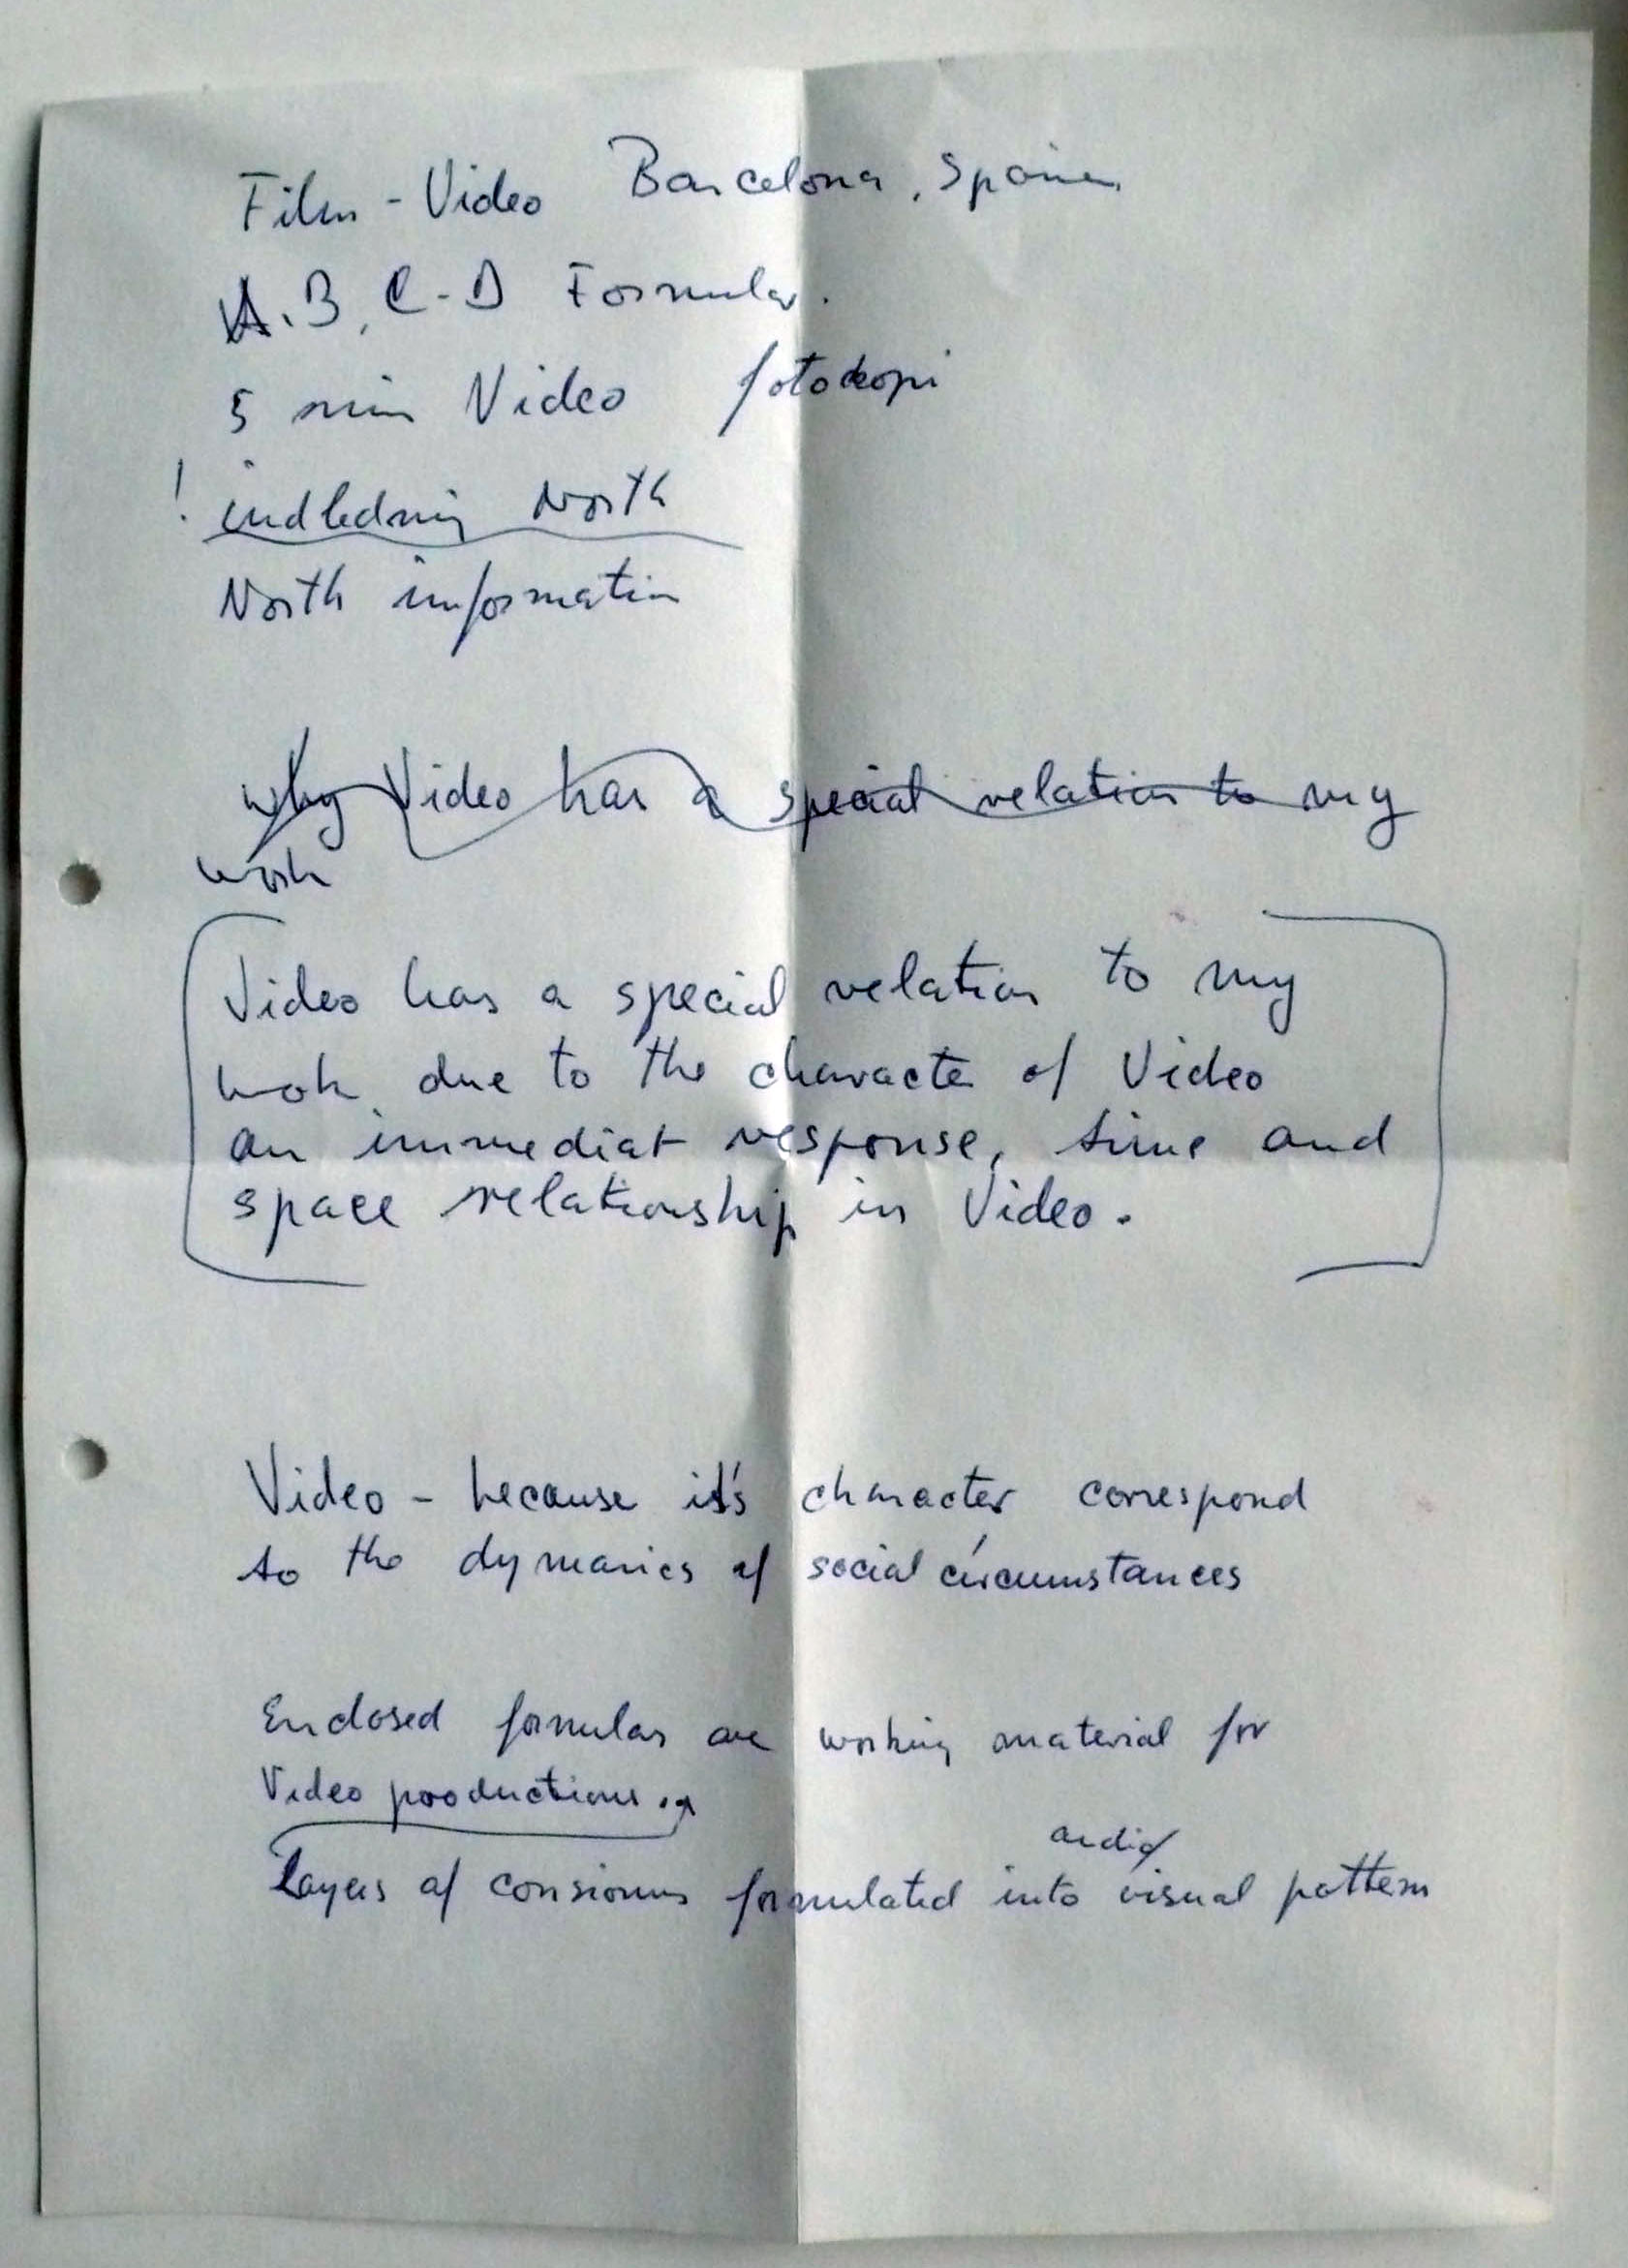 Film - Video Barcelona, Spanien
A. B, C - D Formular.
5 min Video fotokopi
! indledning North
North information
why Video has a special relation to my
work
Video has a special relation to my
work due to the characte of Video
an immediat response, time and
space relationship in Video.
Video - because it's character correspond
to the dynamics of social circumstances
Enclosed formulas are working material for
Video productions.
audio/
Layers of consious formulated into visual pattern